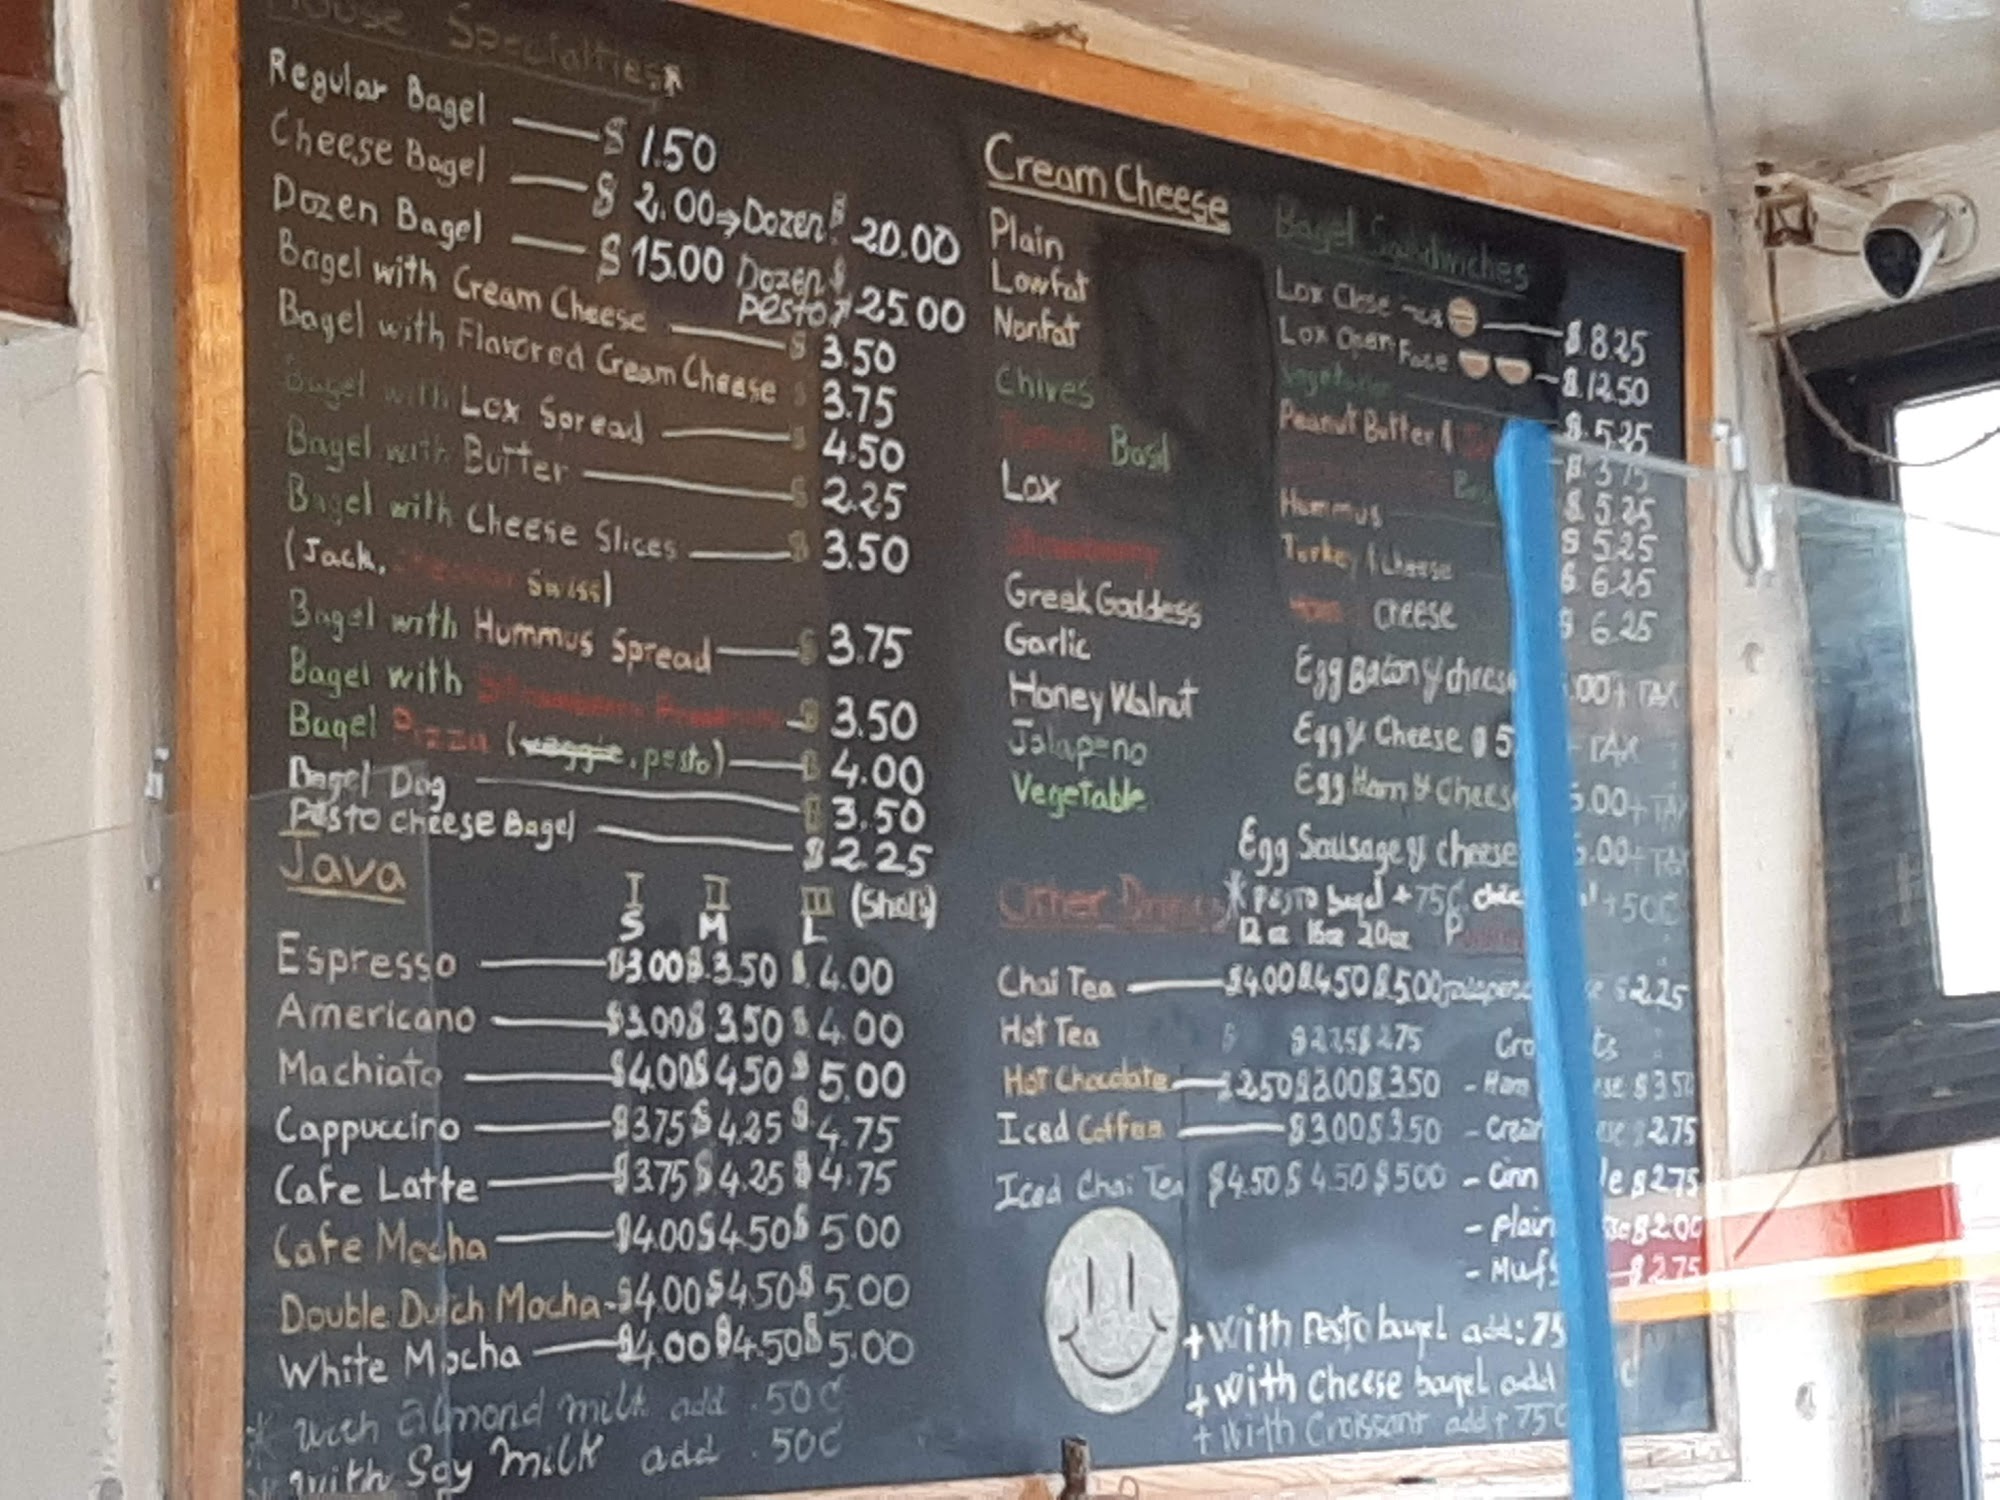 House Specialties
Regular Bagel $ 1.50
Cheese Bagel $ 2.00 ⇒ Dozen: $ 20.00
Dozen Bagel $ 15.00 Dozen $
pesto 25.00
Bagel with Cream Cheese $ 3.50
Bagel with Flavored Cream Cheese $ 3.75
Bagel with Lox Spread $ 4.50
Bagel with Butter $ 2.25
Bagel with Cheese Slices $ 3.50
(Jack, Swiss)
Bagel with Hummus Spread $ 3.75
Bagel with $ 3.50
Bagel Pizza (veggie, pesto) $ 4.00
Bagel Dog $ 3.50
Pesto cheese Bagel $ 2.25
Java I II III (Shots)
S M L
Espresso $3.00 $3.50 $4.00
Americano $3.00 $3.50 $4.00
Machiato $4.00 $4.50 $5.00
Cappuccino $3.75 $4.25 $4.75
Cafe Latte $3.75 $4.25 $4.75
Cafe Mocha $4.00 $4.50 $5.00
Double Dutch Mocha $4.00 $4.50 $5.00
White Mocha $4.00 $4.50 $5.00
* with almond milk add .50¢
* with Soy Milk add .50¢
Cream Cheese
Plain
Lowfat
Nonfat
Chives
Tomato Basil
Lox
Strawberry
Greek Goddess
Garlic
Honey Walnut
Jalapeno
Vegetable
Bagel Sandwiches
Lox Close $ 8.25
Lox Open Face $ 12.50
Vegetable $ 5.25
Peanut Butter & $ 3.75
$ 5.25
Hummus $ 5.25
Turkey & Cheese $ 6.25
Ham cheese $ 6.25
Egg Bacon & cheese .00 + TAX
Egg & Cheese $ 5 TAX
Egg Ham & Cheese 6.00 + TAX
Egg Sausage & cheese 6.00 + TAX
* Pesto bagel + 75¢ +50¢
Other Drinks
12 oz 16oz 20oz
Chai Tea $4.00 $4.50 $5.00
Hot Tea $ $2.25 $2.75
Hot Chocolate $2.50 $3.00 $3.50
Iced Coffee $3.00 $3.50
Iced Chai Tea $4.50 $4.50 $5.00
$2.25
- Ham $3.50
$2.75
$2.75
- plain $2.00
$2.75
+ with Pesto bagel add: 75
+ with Cheese bagel add
+ with Croissant add + 75¢